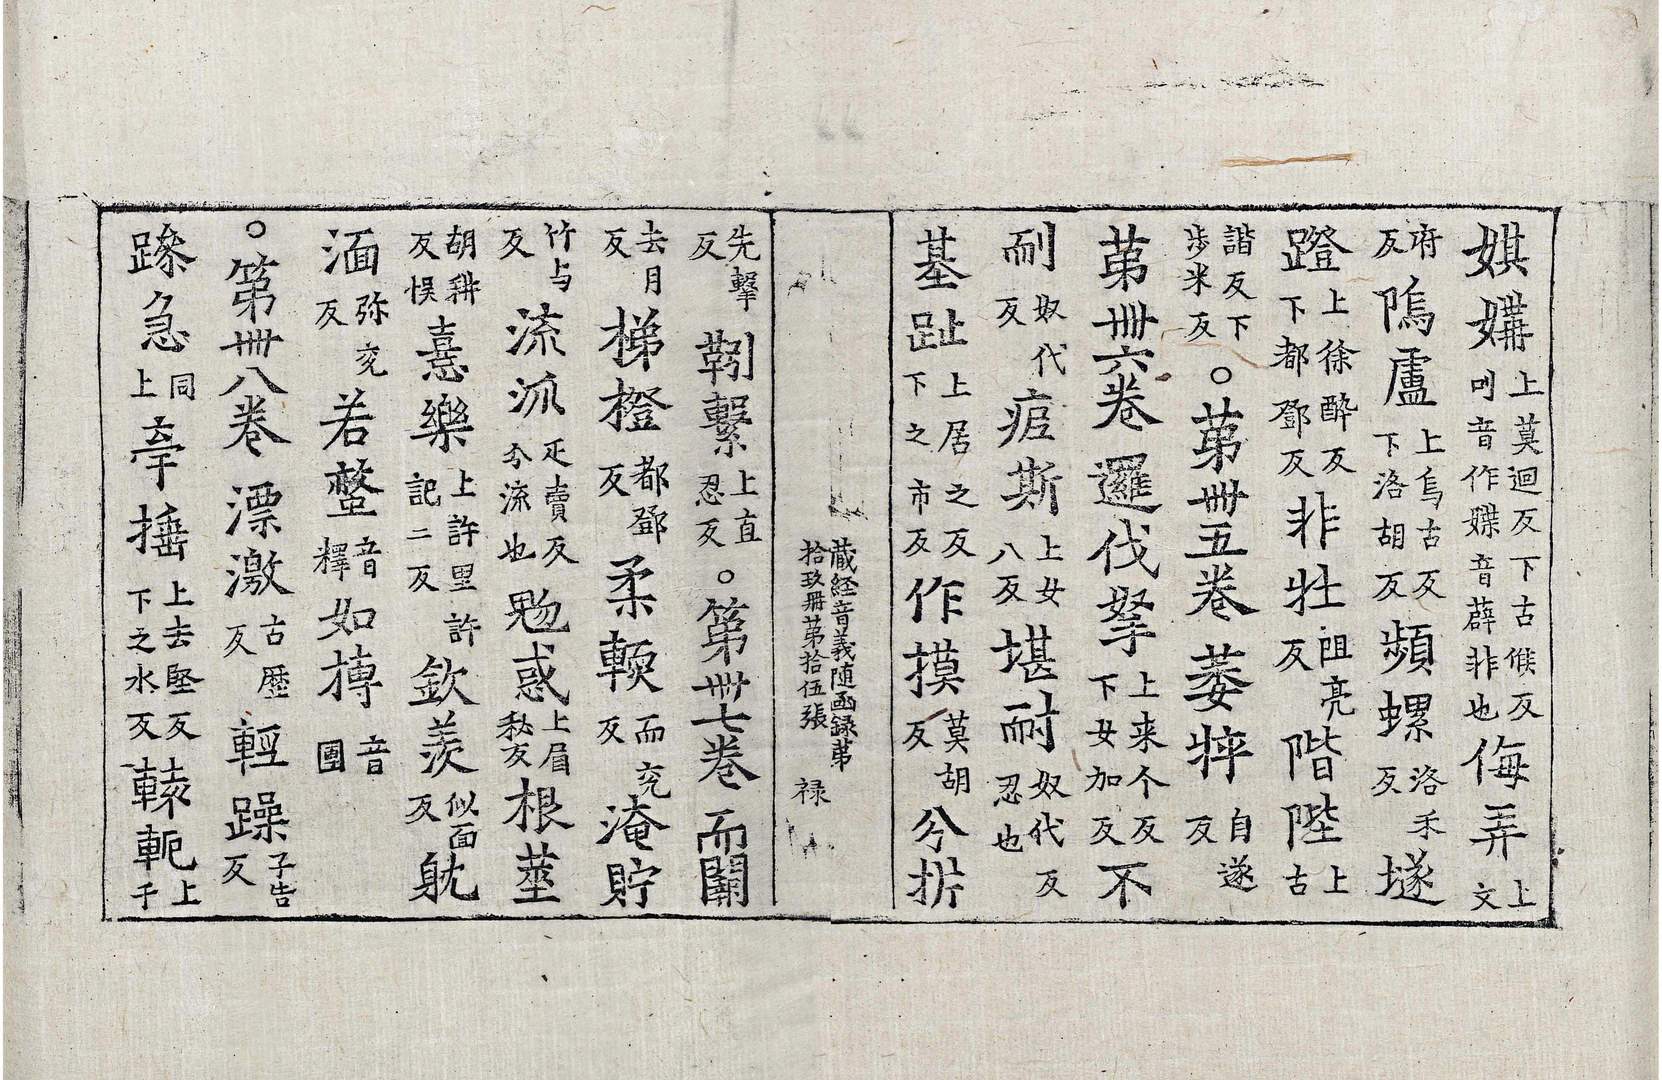 媒媾上莫迴反下古候反叫音作媟音薜非也侮弄上文
府反隖廬上烏古反下洛胡反蘋螺洛禾反墜
蹬上徐醉反下都鄧反非壯阻亮反階陛上古
諧反下步米反○苐卌五卷萎悴自遂反
苐卌六卷邏伐拏上来个反下女加反不
耐奴代反㾕斯上女八反堪耐奴代反忍也
基趾上居之反下之市反作摸莫胡反分㭊
蔵経音義随函録苐
拾玖冊苐拾伍張 禄
先擊反靷繫上直忍反○第卌七卷而闘
去月反梯橙都鄧反柔輭而兖反淹貯
竹与反流派疋賣反分流也魅惑上眉秘反根莖
胡耕反悮憙樂上許里許記二反欽羡似面反躭
湎弥兖反若螫音釋如摶音團
○第卌八卷漂激古歷反輕躁子告反
躁急同上牽捶上去堅反下之水反轅軛上千